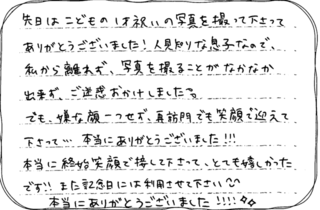 先日は こどもの1才祝いの写真を撮って下さって
ありがとうございました！人見知りな息子なので、
私から離れず、写真を撮ることがなかなか
出来ず、ご迷惑おかけしました。
でも、嫌な顔一つせず、再訪問でも笑顔で迎えて
下さって… 本当にありがとうございました!!!
本当に終始笑顔で接して下さって、とても嬉しかった
です!! また記念日には利用させて下さい
本当にありがとうございました!!!!